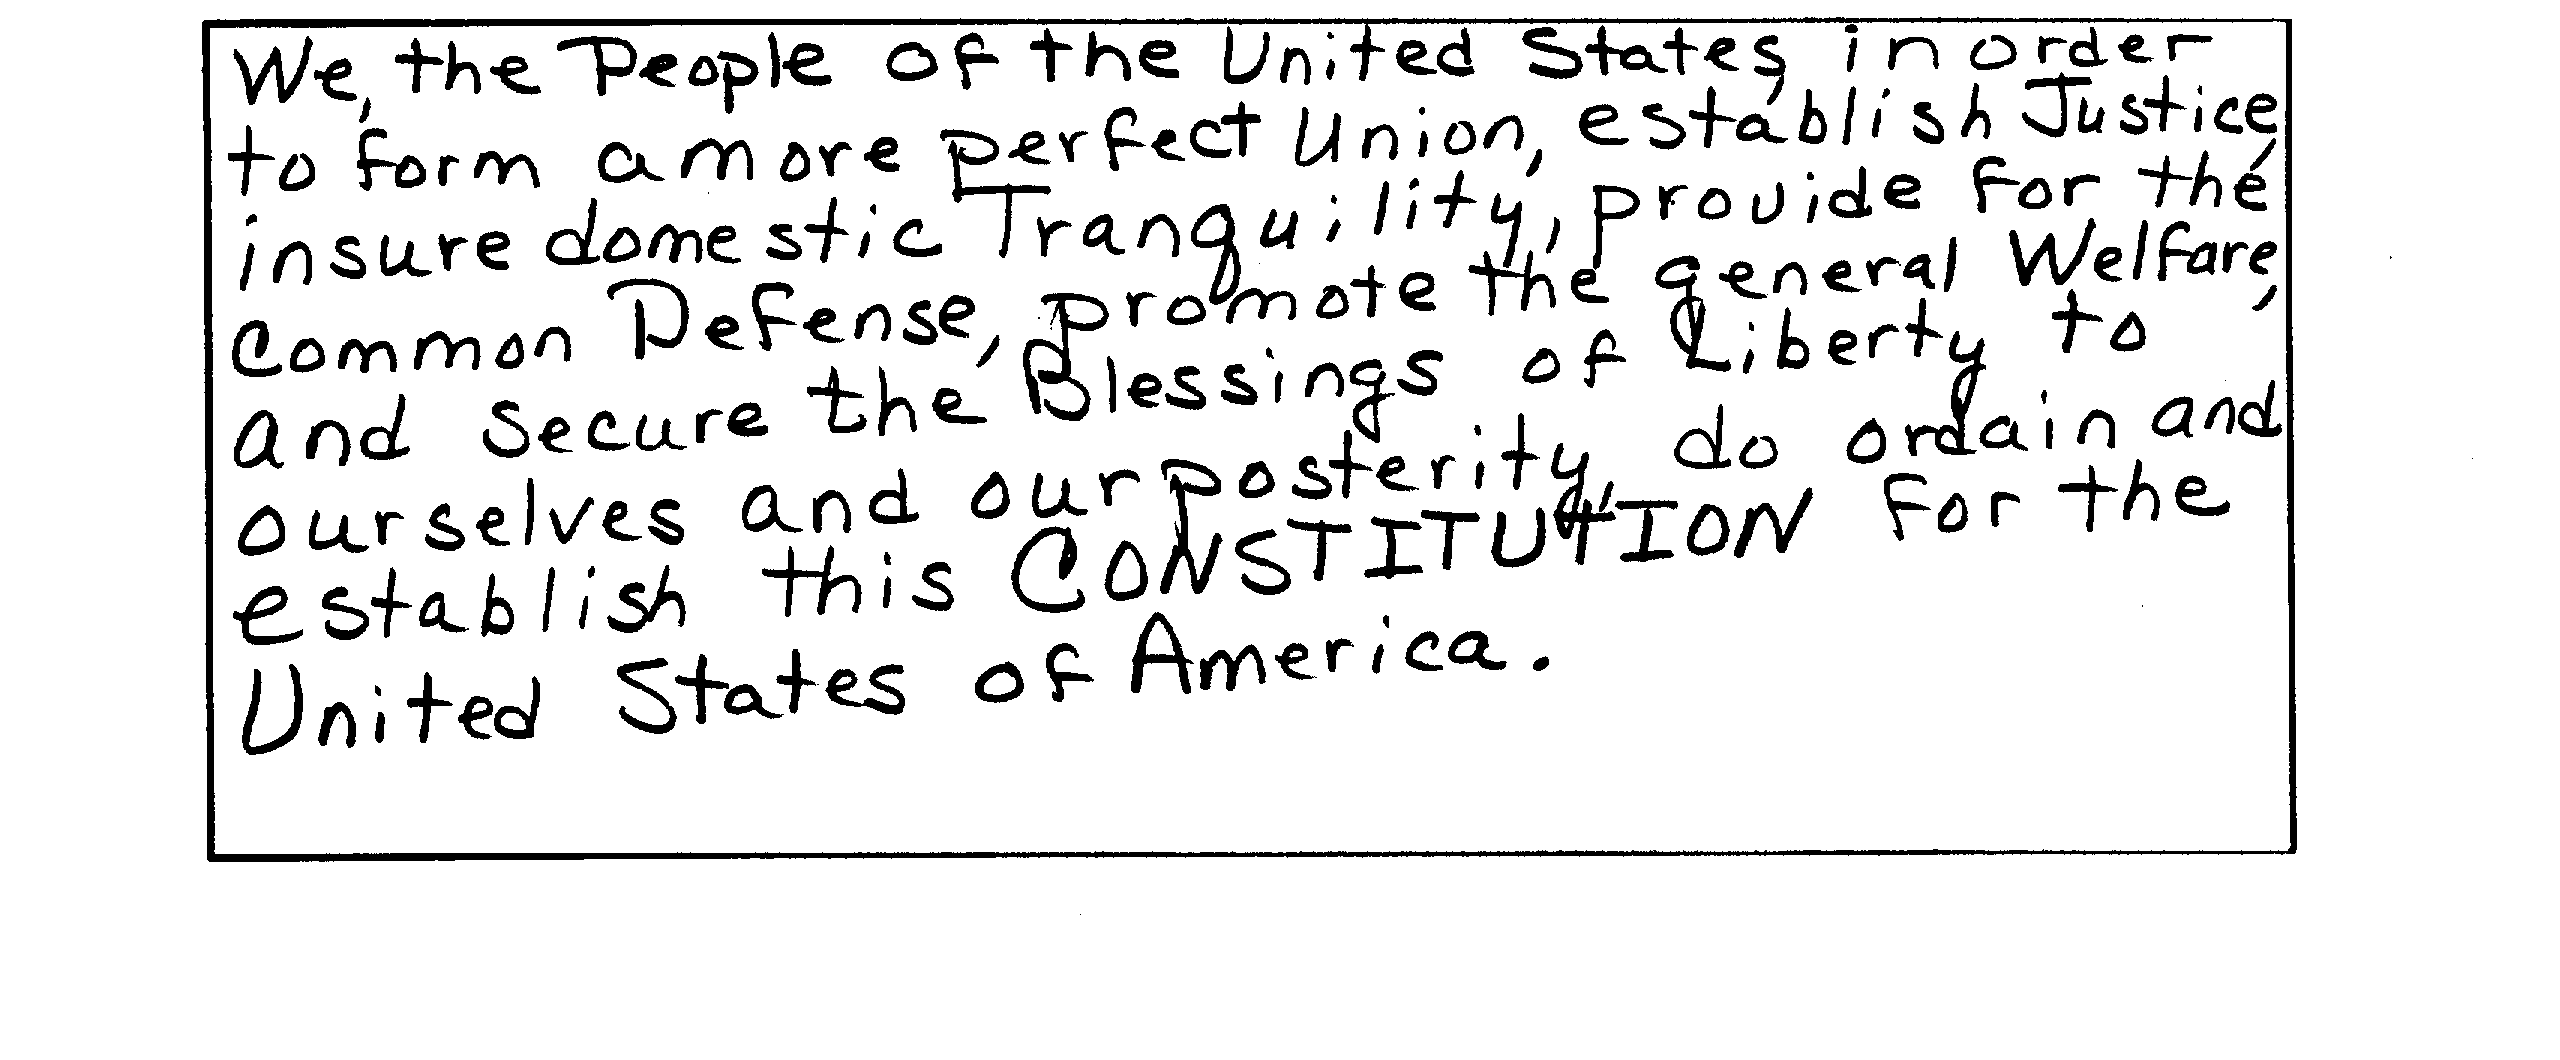 We, the People of the United States, in order
to form a more perfect Union, establish Justice,
insure domestic Tranquility, provide for the
Common Defense, promote the general Welfare,
and secure the Blessings of Liberty to
ourselves and our posterity, do ordain and
establish this CONSTITUTION for the
United States of America.